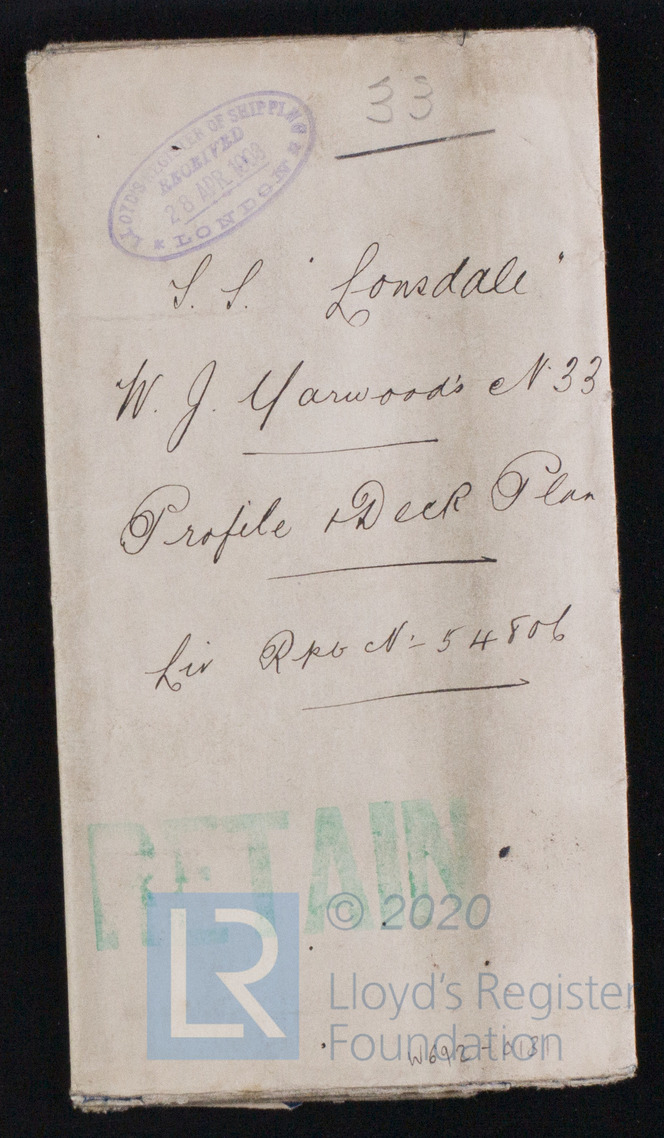 33
LLOYD'S REGISTER OF SHIPPING
RECEIVED
28 APR. 1903
* LONDON *
S. S. "Lonsdale"
W. J. Yarwood's No 33
Profile & Deck Plan
Liv Rpt No - 54806
RETAIN
LR
© 2020
Lloyd's Register
Foundation
W692-013